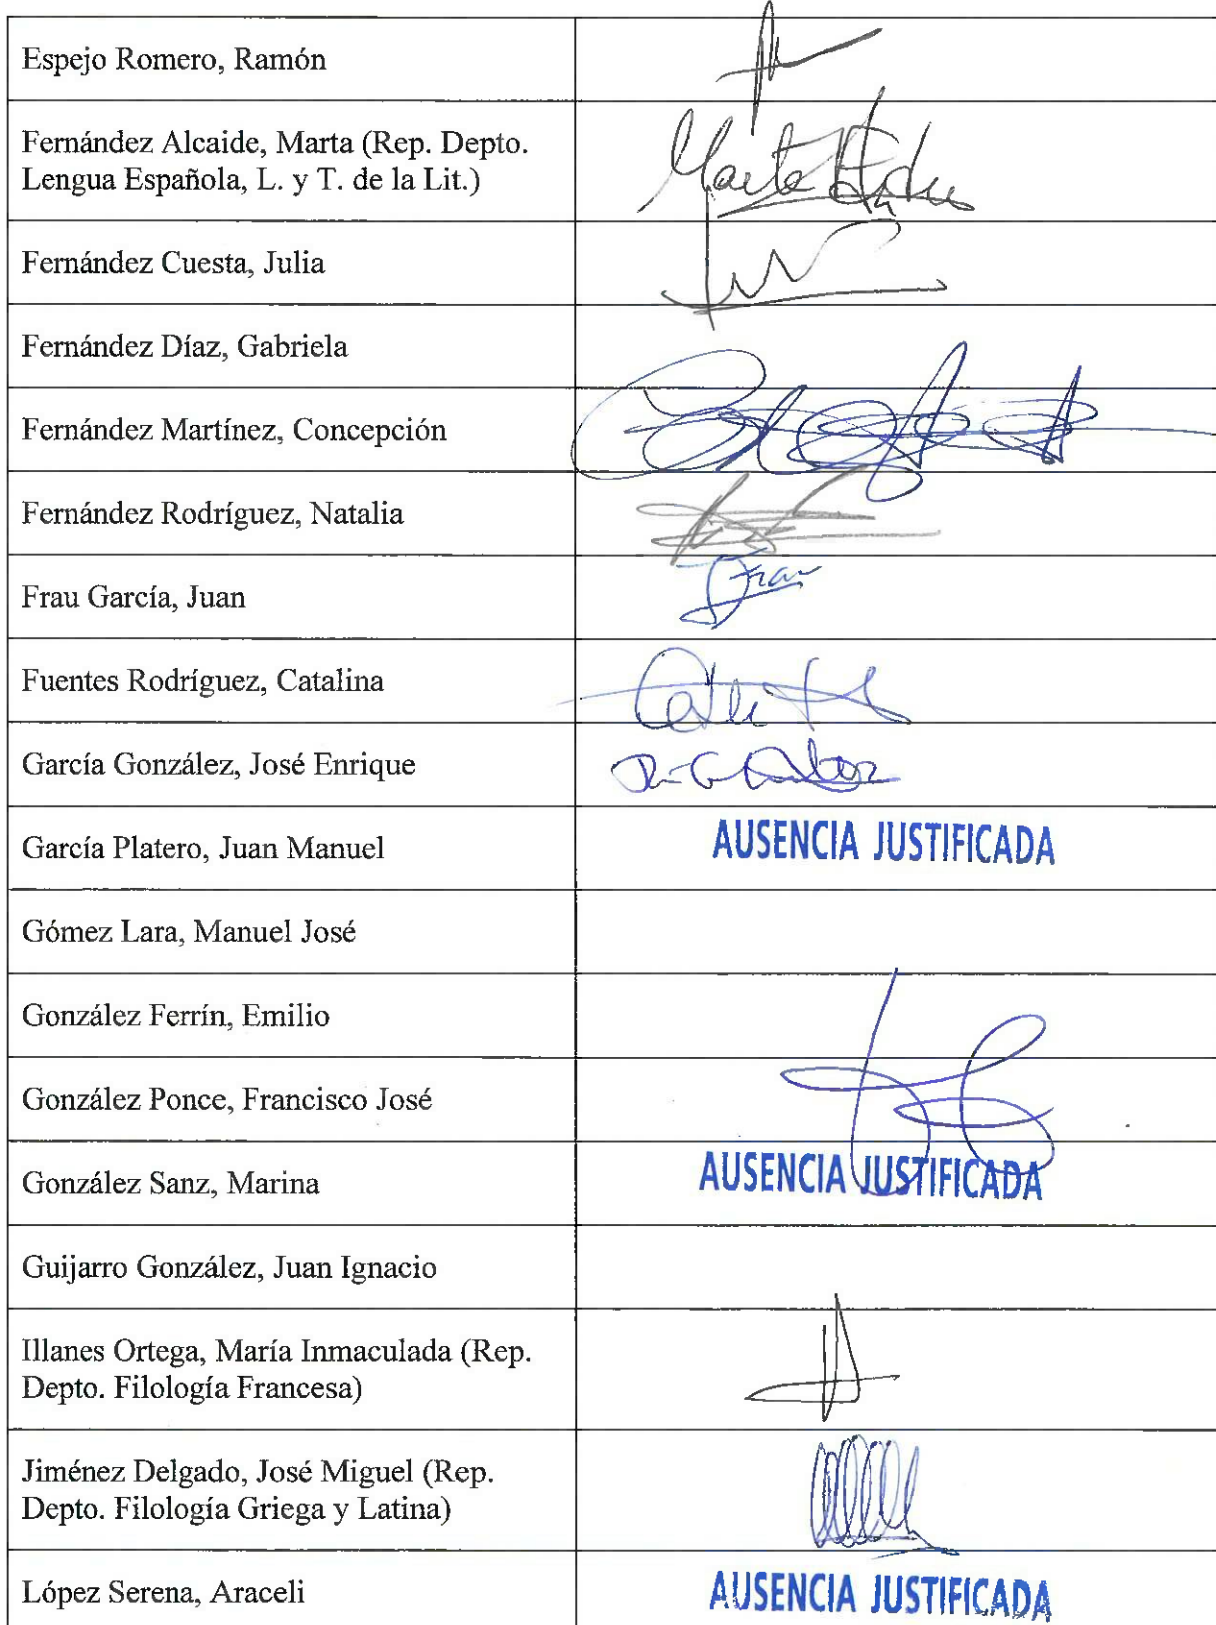 Espejo Romero, Ramón
Fernández Alcaide, Marta (Rep. Depto.
Lengua Española, L. y T. de la Lit.)
Fernández Cuesta, Julia
Fernández Díaz, Gabriela
Fernández Martínez, Concepción
Fernández Rodríguez, Natalia
Frau García, Juan
Frau
Fuentes Rodríguez, Catalina
García González, José Enrique
García Platero, Juan Manuel
AUSENCIA JUSTIFICADA
Gómez Lara, Manuel José
González Ferrín, Emilio
González Ponce, Francisco José
González Sanz, Marina
AUSENCIA JUSTIFICADA
Guijarro González, Juan Ignacio
Illanes Ortega, María Inmaculada (Rep.
Depto. Filología Francesa)
Jiménez Delgado, José Miguel (Rep.
Depto. Filología Griega y Latina)
López Serena, Araceli
AUSENCIA JUSTIFICADA